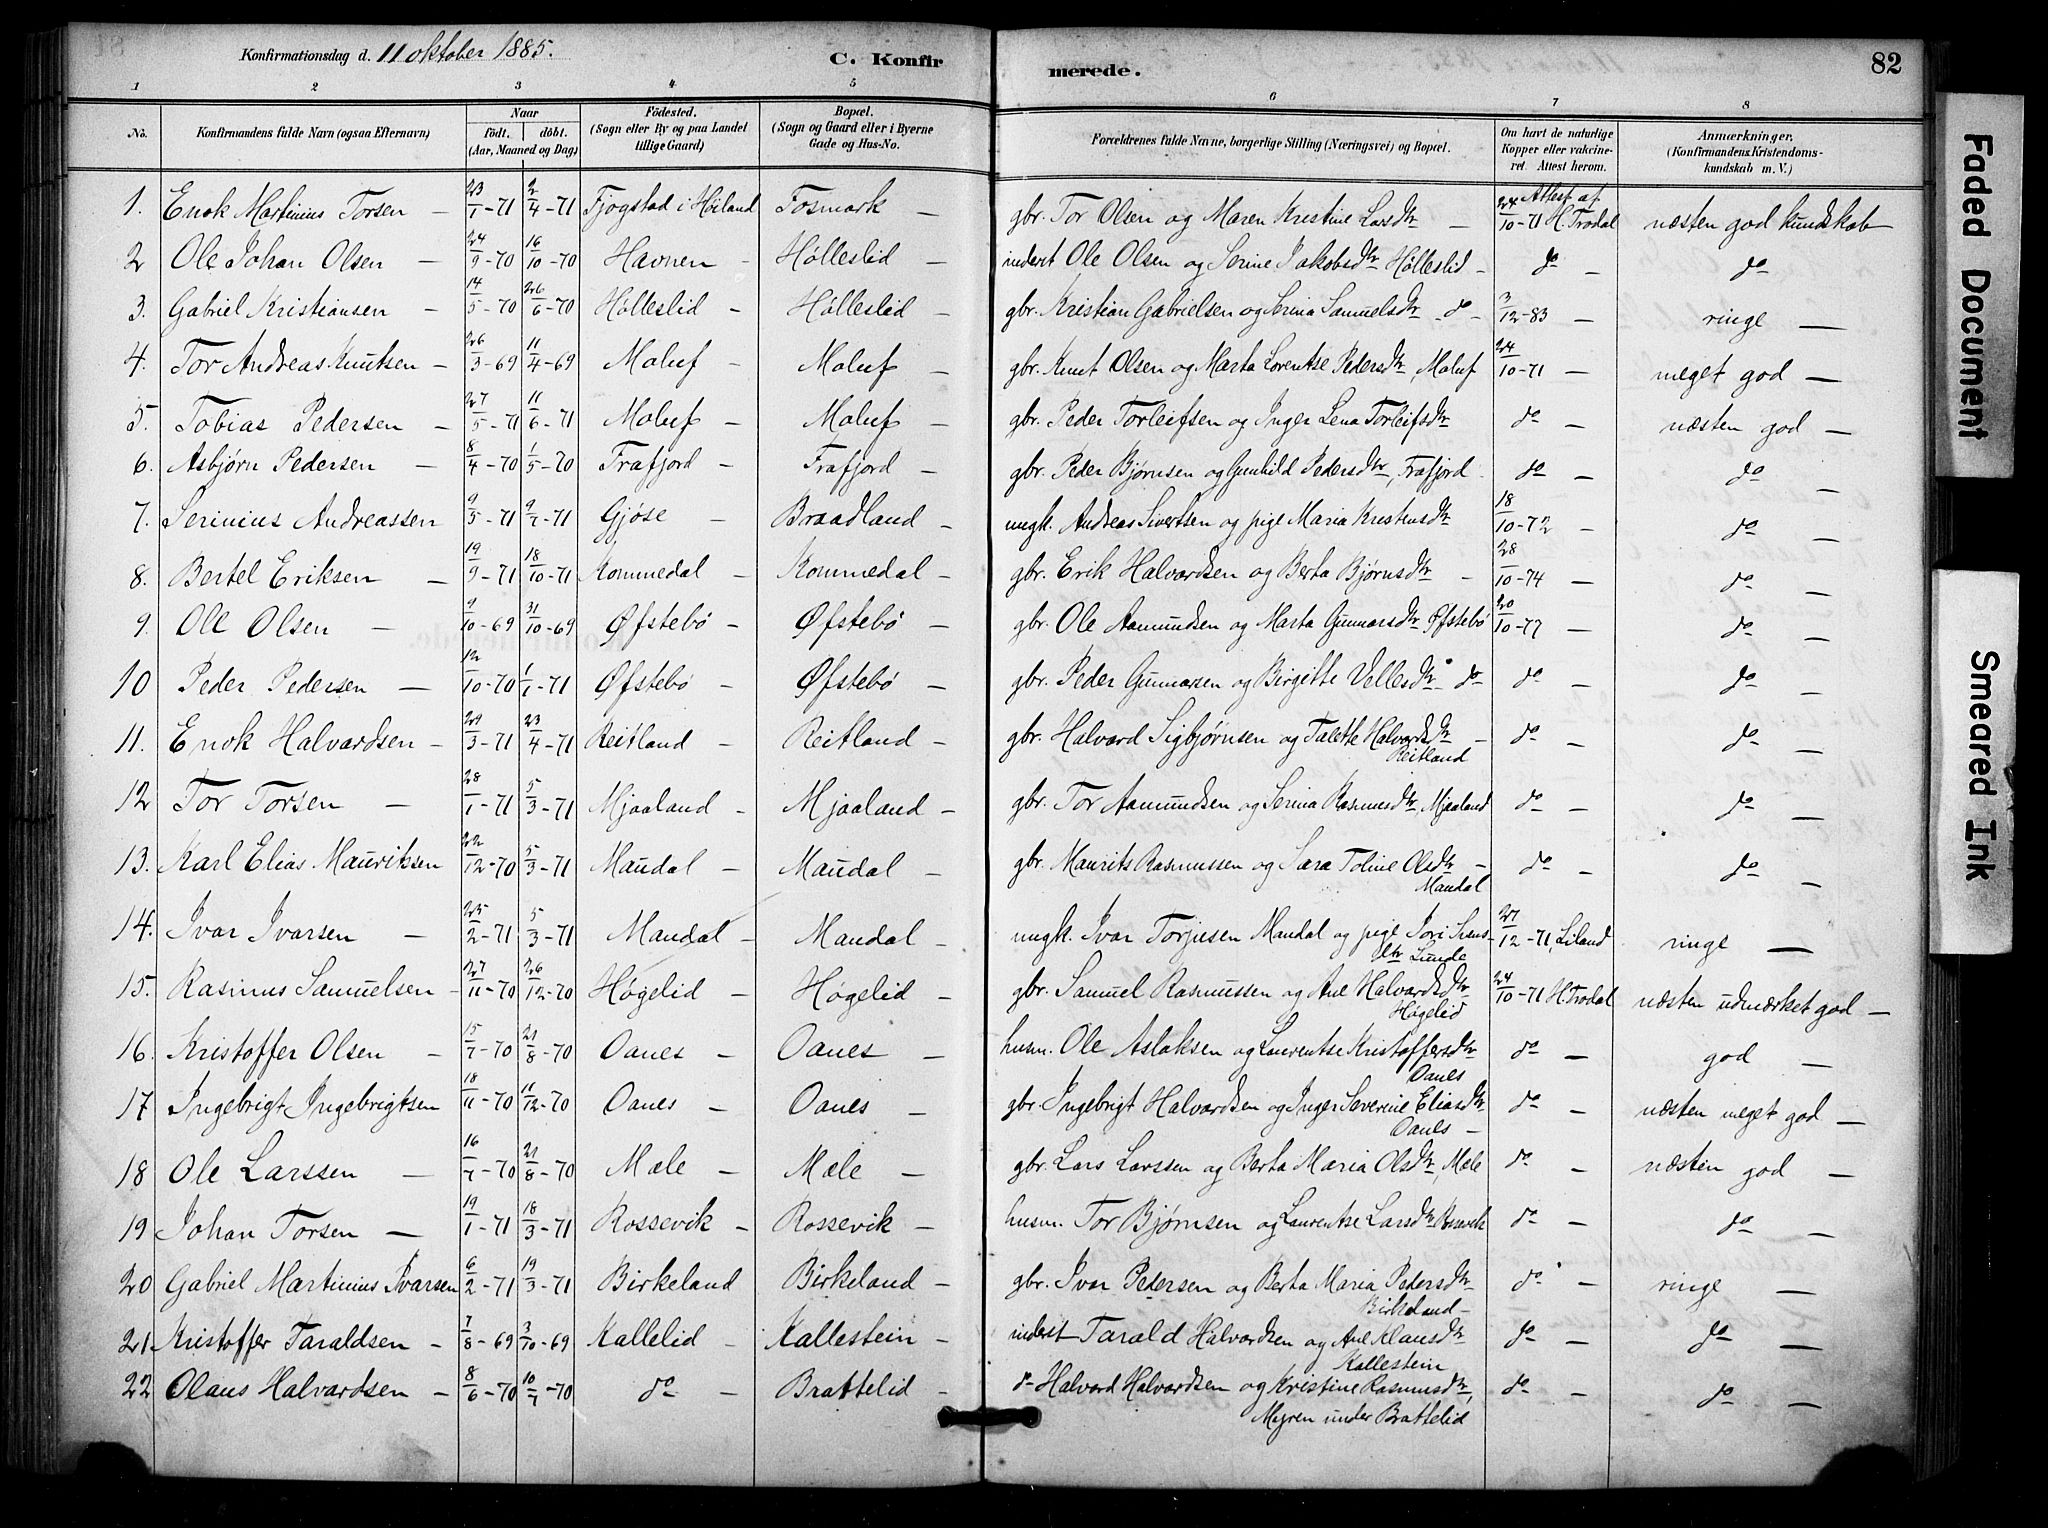 Konfirmationsdag d. 11 oktober 1885.
C. Konfirmerede.
82
1 2 3 4 5 6 7 8
No. Konfirmandens fulde Navn (ogsaa Efternavn) Naar Födt. döbt. (Aar, Maaned og Dag) Födested. (Sogn eller By og paa Landet tillige Gaard) Bopæl. (Sogn og Gaard eller i Byerne Gade og Hus-No. Forældrenes fulde Navne, borgerlige Stilling (Næringsvei) og Bopæl. Om havt de naturlige Kopper eller vakcineret. Attest herom. Anmærkninger. (Konfirmandens Kristendomskundskab m. V.)
1. Enok Martinius Torsen – 23/1-71 2/4-71 Fjogstad i Höiland Fosmark – gbr. Tor Olsen og Maren Kristine Larsdtr – 24/10-71 Attest af H. Trodal næsten god kundskab
2 Ole Johan Olsen – 24/9-70 16/10-70 Havnen – Hölleslid – inderst Ole Olsen og Serine Jakobsdtr Hölleslid – do – do
3. Gabriel Kristiansen – 14/5-70 26/6-70 Hölleslid – Hölleslid – gbr. Kristian Gabrielsen og Serina Samuelsdtr do – 3/12-83 – ringe –
4. Tor Andreas Knutsen – 26/3-69 11/4-69 Moluf – Moluf – gbr. Knut Olsen og Marta Lorentse Pedersdtr, Moluf 24/10-71 – meget god –
5. Tobias Pedersen – 27/5-71 11/6-71 Moluf – Moluf – gbr. Peder Torleifsen og Inger Lena Torleifsdtr do – næsten god –
6. Asbjørn Pedersen – 8/4-70 1/5-70 Frafjord – Frafjord – gbr. Peder Bjørnsen og Gunhild Pedersdtr, Frafjord do – do –
7. Serinius Andreassen 9/5-71 9/7-71 Gjöse – Braadland – ungk. Andreas Sivertsen og pige Maria Kristensdtr 18/10-72 – do –
8. Bertel Eriksen – 19/9-71 18/10-71 Kommedal – Kommedal – gbr. Erik Halvardsen og Berta Bjørnsdtr – 28/10-74 – do –
9. Ole Olsen – 9/10-69 31/10-69 Øfstebö – Øfstebö – gbr. Ole Aamundsen og Marta Gunnarsdtr Øfstebö 20/10-77 – do –
10 Peder Pedersen – 12/10-70 1/1-71 Øfstebö – Øfstebö – gbr. Peder Gunnarsen og Birgitte Vellesdtr do do – do –
11. Enok Halvardsen – 24/3-71 23/4-71 Reitland – Reitland – gbr. Halvard Sigbjørnsen og Talette Halvardsdtr – do – do –
Reitland
12 Tor Torsen – 28/1-71 5/3-71 Mjaaland – Mjaaland – gbr. Tor Aamundsen og Serina Rasmusdtr, Mjaaland do – do –
13. Karl Elias Mauritsen 22/12-70 5/3-71 Maudal – Maudal – gbr. Maurits Rasmussen og Sara Toline Olsdtr – do – do –
Maudal
14. Ivar Ivarsen – 25/2-71 5/3-71 Maudal – Maudal – ungk. Ivar Torjusen Maudal og pige Jori Svens- 27/12-71, Liland ringe –
dtr Lunde
15. Rasmus Samuelsen – 27/11-70 26/12-70 Högelid – Högelid – gbr. Samuel Rasmussen og Ane Halvardsdtr 24/10-71 H. Trodal næsten udmærket god –
Högelid
16. Kristoffer Olsen – 15/7-70 21/8-70 Oanes – Oanes – husm. Ole Aslaksen og Laurentse Kristoffersdtr do – god –
Oanes
17 Ingebrigt Ingebrigtsen 18/11-70 11/12-70 Oanes – Oanes – gbr. Ingebrigt Halvardsen og Inger Severine Eliasdtr do – næsten meget god –
Oanes –
18 Ole Larssen – 16/7-70 21/8-70 Mæle – Mæle – gbr. Lars Larssen og Berta Maria Olsdtr, Mæle do – næsten god –
19 Johan Torsen – 19/1-71 18/3-71 Rossevik – Rossevik – husm. Tor Bjørnsen og Laurentse Larsdtr Rossevik do – do –
20 Gabriel Martinius Ivarsen 6/2-71 19/3-71 Birkeland Birkeland – gbr. Ivar Pedersen og Berta Maria Pedersdtr do – ringe –
Birkeland –
21 Kristoffer Taraldsen – 7/8-69 3/10-69 Kallelid – Kallestein – inderst Tarald Halvardsen og Ane Klausdtr do – do –
Kallestein
22 Olaus Halvardsen – 8/6-70 10/7-70 do – Brattelid – do Halvard Halvardsen og Kristine Rasmusdtr, do – do –
Myren under Brattelid
Faded Document
Smeared Ink